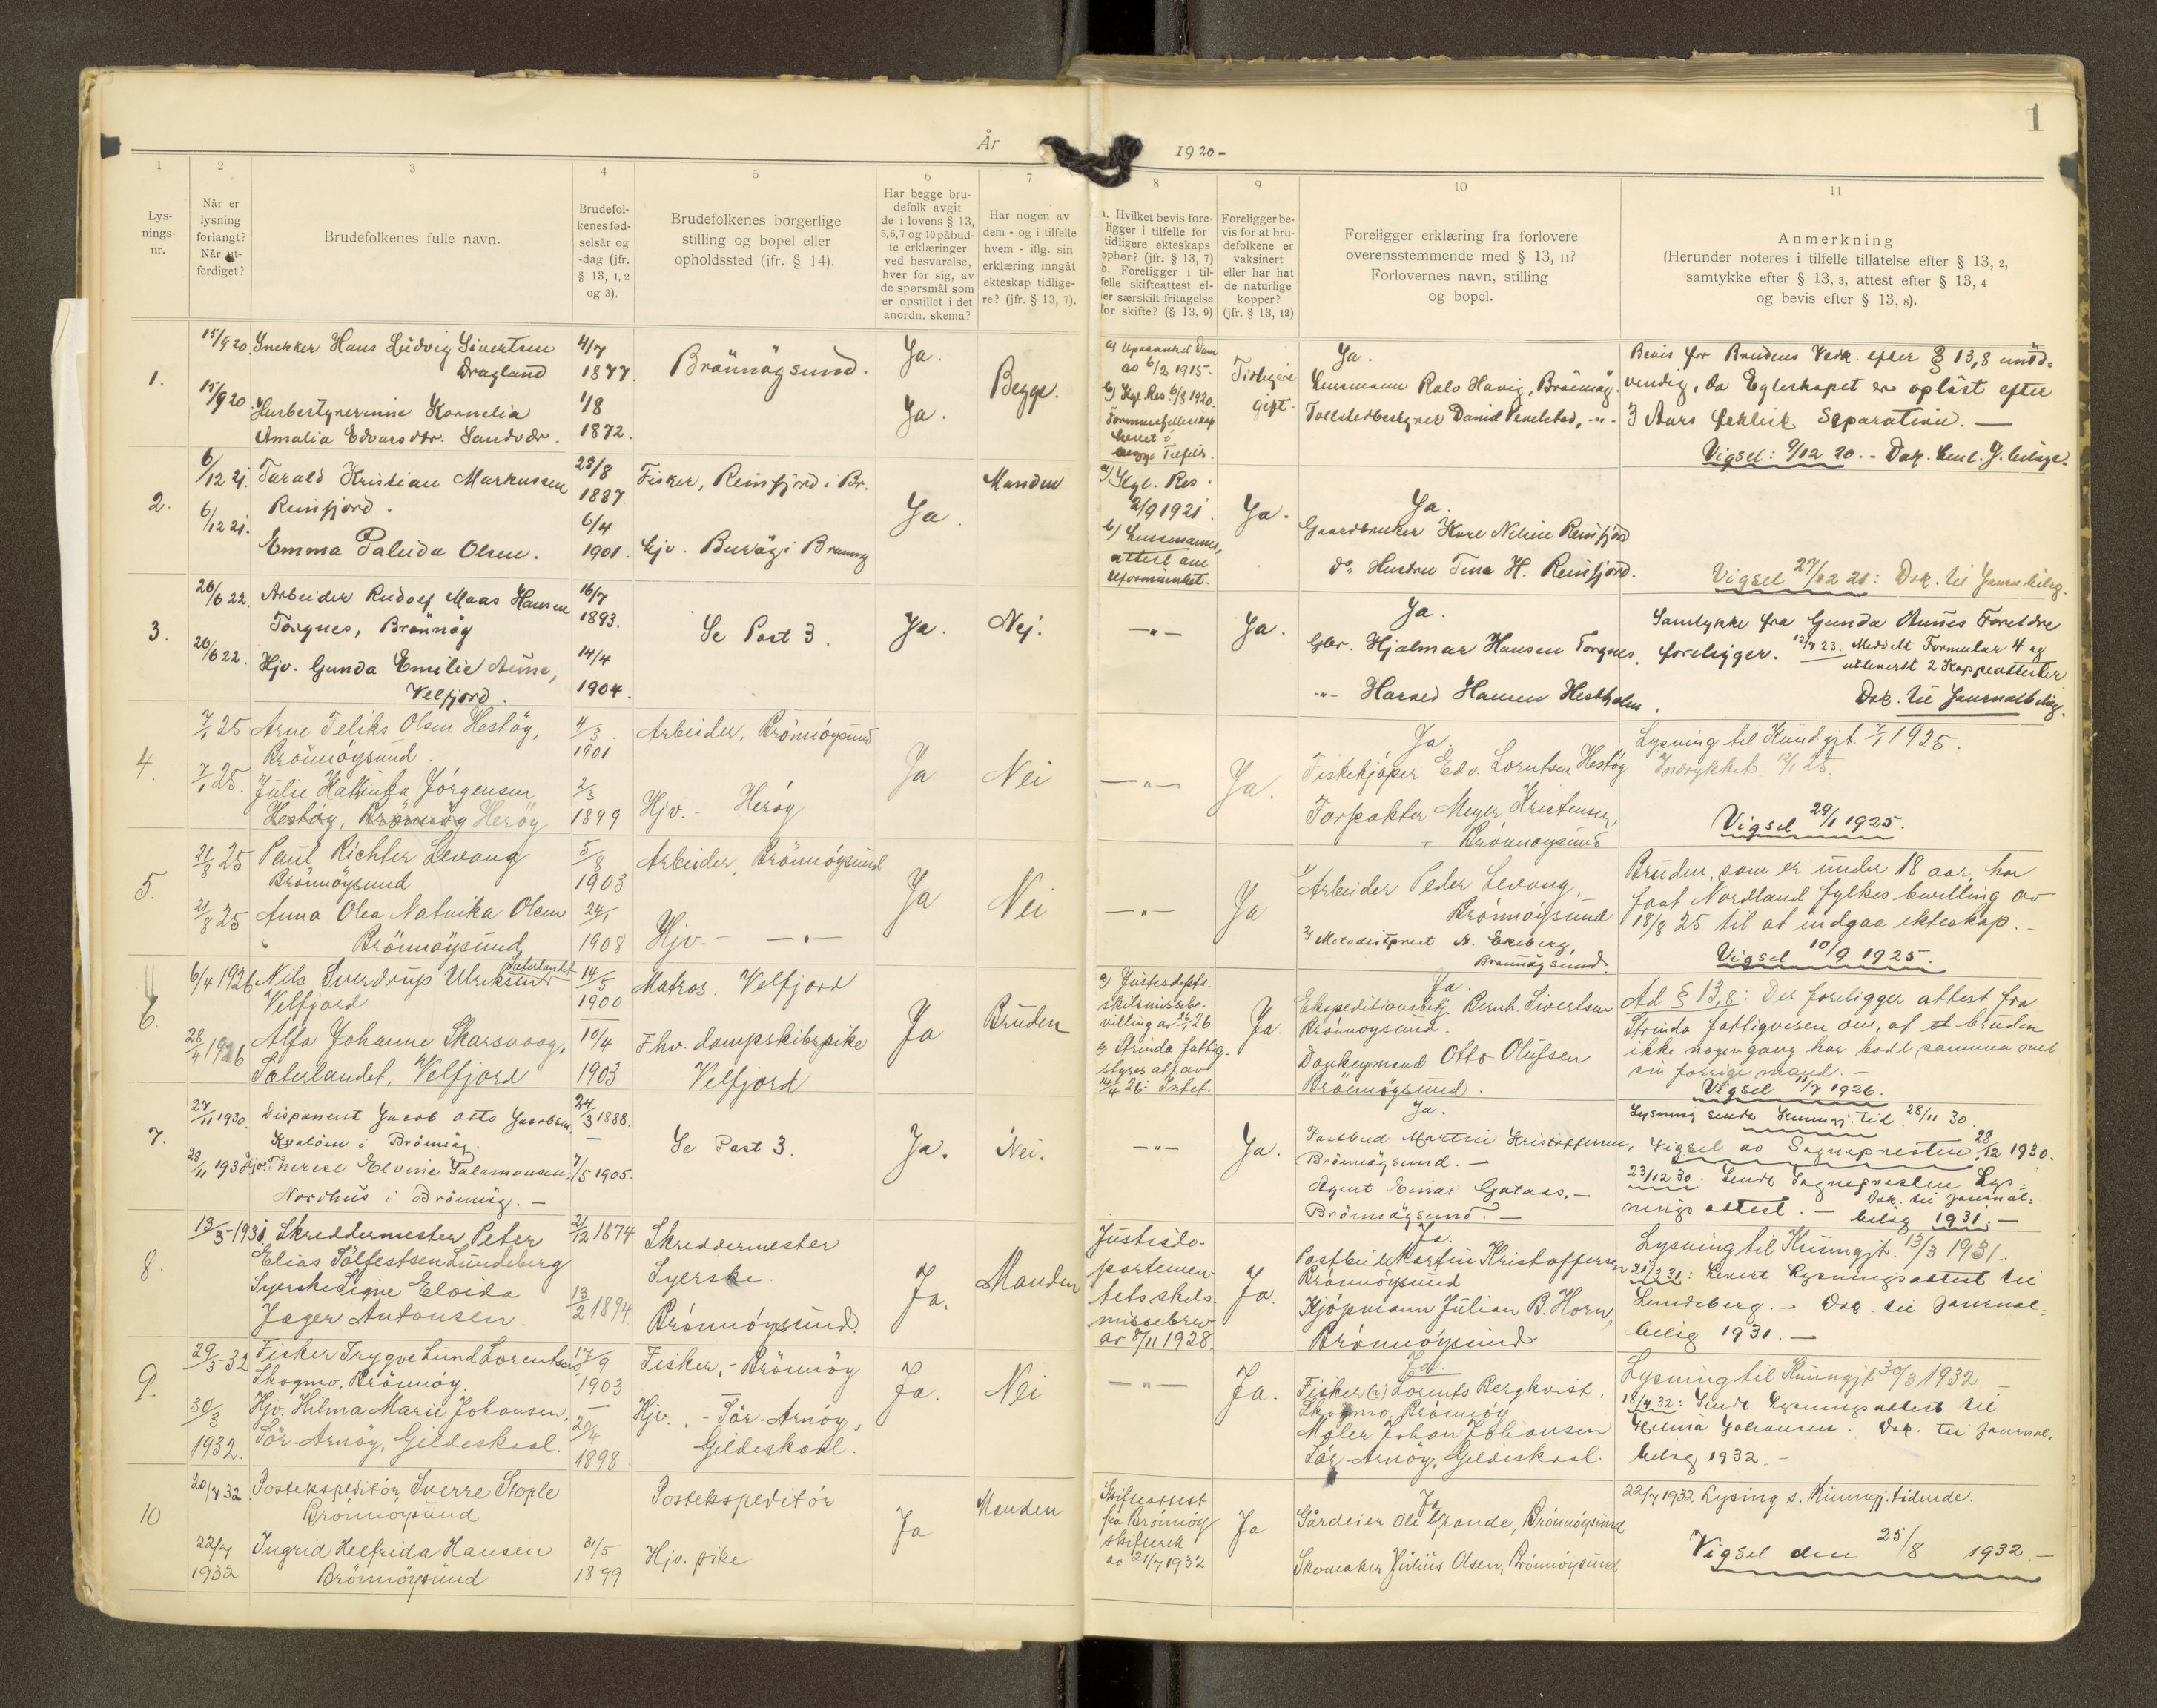 1
År
1920-
1
2
3
4
5
6
7
8
9
10
11
Lys-
nings-
nr.
Når er
lysning
forlangt?
Når ut-
ferdiget?
Brudefolkenes fulle navn.
Brudefol-
kenes fød-
selsår og
-dag (jfr.
§ 13, 1, 2
og 3).
Brudefolkenes borgerlige
stilling og bopel eller
opholdssted (ifr. § 14).
Har begge bru-
defolk avgit
de i lovens § 13,
5,6,7 og 10 påbud-
te erklæringer
ved besvarelse,
hver for sig, av
de spørsmål som
er opstillet i det
anordn. skema?
Har nogen av
dem - og i tilfelle
hvem - iflg. sin
erklæring inngåt
ekteskap tidlige-
re? (jfr. § 13, 7).
a. Hvilket bevis fore-
ligger i tilfelle for
tidligere ekteskaps
ophør? (jfr. § 13, 7)
b. Foreligger i til-
felle skifteattest el-
ler særskilt fritagelse
for skifte? (§ 13, 9)
Foreligger be-
vis for at bru-
defolkene er
vaksinert
eller har hat
de naturlige
kopper?
(jfr. § 13, 12)
Foreligger erklæring fra forlovere
overensstemmende med § 13, 11?
Forlovernes navn, stilling
og bopel.
Anmerkning
(Herunder noteres i tilfelle tillatelse efter § 13, 2,
samtykke efter § 13, 3, attest efter § 13, 4
og bevis efter § 13, 8).
1.
15/9 20.
15/9 20.
Snekker Hans Ludvig Sivertsen
Dragland
Husbestyrerinne Kornelia
Amalia Edvarsdtr. Sandvær.
4/7
1877.
1/8
1872.
Brönnögsund.
Ja.
Ja.
Begge.
a) Upaaanket Dom
av 6/2 1915.
b) Kgl. Res. 6/8 1920.
Formuesfellesskap
hevet i
begge Tilfeld.
Tidligere
gift.
Ja.
Lensmann Halv Havig, Brönnög.
Toldstedbestyrer Daniel
Bevis for Brudens Vedk. efter § 13,8 unöd-
vendig, da Egteskapet er oplöst efter
3 Aars faktisk Separation. —
Vigsel: 9/12 20. - Dok.
2.
6/12 21.
6/12 21.
Tarald Kristian Markussen
Reinfjord.
Emma Paluda Olsen.
23/8
1887.
6/4
1901.
Fisker, Reinfjord i Br.
Hjv. Buröy i Brönnöy
Ja.
Manden
a) Kgl. Res.
2/9 1921.
b) Lensmanns
attest om
Uformuenhet.
Ja.
Ja.
Gaardbruker Hare Nilsen Reinfjord
do. Hustru Tina H. Reinfjord.
Vigsel 27/12 21: Dok. til Journalbilag.
3.
26/6 22.
26/6 22.
Arbeider Rudolf Maas Hansen
Torgnes, Brönnög
Hjv. Gunda Emilie Aune,
Velfjord.
16/7
1893.
14/4
1904.
Se Post 3.
Ja.
Nej.
—"—
Ja.
Ja.
Gbr. Hjalmar Hansen Torgnes.
-"- Harald Hansen Hestholm.
Samtykke fra Gunda Aunes Foreldre
foreligger. 12/7 23. Meddelt Formular 4 og
utleverst 2 Koppeattester
Dok. til Journalbilag.
4.
7/1 25
7/1 25.
Arne Feliks Olsen Hestöy,
Brönnöysund.
Julie Katinka Jörgensen
Hestöy, Brönnöy Heröy
4/3
1901
2/3
1899
Arbeider, Brönnöysund
Hjv. - Heröy
Ja
Nei
—"—
Ja.
Ja.
Fiskekjöper Edv. Lorntsen Hestöy
Forpakter Meyer Kristensen,
Brönnöysund
Lysning til Kundgjt 7/1 1925.
Indrykket 12/1 25.
Vigsel 29/1 1925.
5.
21/8 25
21/8 25
Paul Richter Levang
Brönnöysund
Anna Olea Natvika Olsen
Brönnöysund
5/8
1903
24/1
1908
Arbeider, Brönnöysund
Hjv. - —"—
Ja
Nei
—"—
Ja
1) Arbeider Peder Levang,
Brönnöysund
2) Metodistprest A. Ekeberg,
Brönnöysund.
Bruden, som er under 18 aar, har
faat Nordland fylkes bevilling av
18/8 25 til at indgaa ekteskap. -
Vigsel 10/9 1925.
6.
6/4 1926
28/4 1926
Nils Sverdrup Ulriksen Sæterlandet
Velfjord
Alfa Johanne Skarsvaag,
Sæterlandet, Velfjord
14/5
1900
10/4
1903
Matros, Velfjord
Fhv. dampskibspike
Velfjord
Ja
Bruden
a) Justisdepts.
skilsmissebe-
villing av 26/1 26
b) Strinda fattig-
styres att. av
14/4 26: Intet.
Ja.
Ja.
Ekspeditionsbetj. Bernh. Sivertsen
Brönnöysund.
Donkeymand Otto Olufsen
Brönnöysund.
Ad § 13,8: Der foreligger attest fra
Strinda fattigvesen om, at bruden
ikke nogen gang har bodd sammen med
sin forrige mand. -
Vigsel 11/7 1926.
7.
27/11 1930.
28/11 1930
Disponent Jacob Otto Jacobsen
Kvalöen i Brönnöy.
Hjv. Therese Elvine Salamonsen,
Nordhus i Brönnöy. -
24/3 1888.
—
7/5 1905.
Se Post 3.
Ja.
Nei.
—"—
Ja.
Ja.
Postbud Martin Kristoffersen,
Brönnöysund. -
Agent Einar Gataas, -
Brönnöysund. -
Lysning sendt Kunngj. tid. 28/11 30.
Vigsel av Sogneprosten 28/12 1930.
23/12 30. Sendt Sogneprosten Lys-
ningsattest. - Dok. til journal-
bilag 1931. -
8.
13/3-1931.
Skreddermester Peter
Elias Sölfestsen Lundeberg
Syerske Signe Eloida
Jager Antonsen.
21/12 1874
13/2 1894
Skreddermester
Syerske
Brönnöysund.
Ja.
Manden
Justisde-
partemen-
tets skils-
missebrev
av 8/11 1928.
Ja.
Ja.
Postbud Martin Kristoffersen
Brönnöysund
Kjöpmann Julian B. Horn,
Brönnöysund
Lysning til Kunngjt. 13/3 1931.
21/3 31: Levert Lysningsattest til
Lundeberg. - Dok. til journal-
bilag 1931. -
9.
29/3-32
30/3
1932.
Fisker Trygve Lund Lorentsen,
Skogmo, Brönnöy.
Hjv. Hilma Marie Johansen,
Sör-Arnöy, Gildeskaal.
17/9
1903
—
20/4
1898.
Fisker, - Brönnöy
Hjv. - Sör-Arnöy,
Gildeskaal.
Ja.
Nei
—"—
Ja.
Ja.
Fisker Lorents Bergkvist,
Skogmo, Brönnöy
Maler Johan Johansen
Sör-Arnöy, Gildeskaal.
Lysning til Kunngjt 30/3 1932. -
18/4 32: Sendt Lysningsattest til
Hilma Johansen. Dok. til journal-
bilag 1932. -
10
20/7 32.
22/7
1932
Postekspeditör Sverre Stople
Brönnöysund
Ingrid Helfrida Hansen
Brönnöysund
31/5
1899
Postekspeditör
Hjv. pike
Ja
Manden
Skifteattest
fra Brönnöy
skifterett
av 21/7 1932
Ja
Ja
Gårdeier Ole Grande, Brönnöysund
Skomaker Julius Olsen, Brönnöysund
22/7 1932 Lysing s. Kunngj.tidende.
Vigsel den 25/8 1932. -